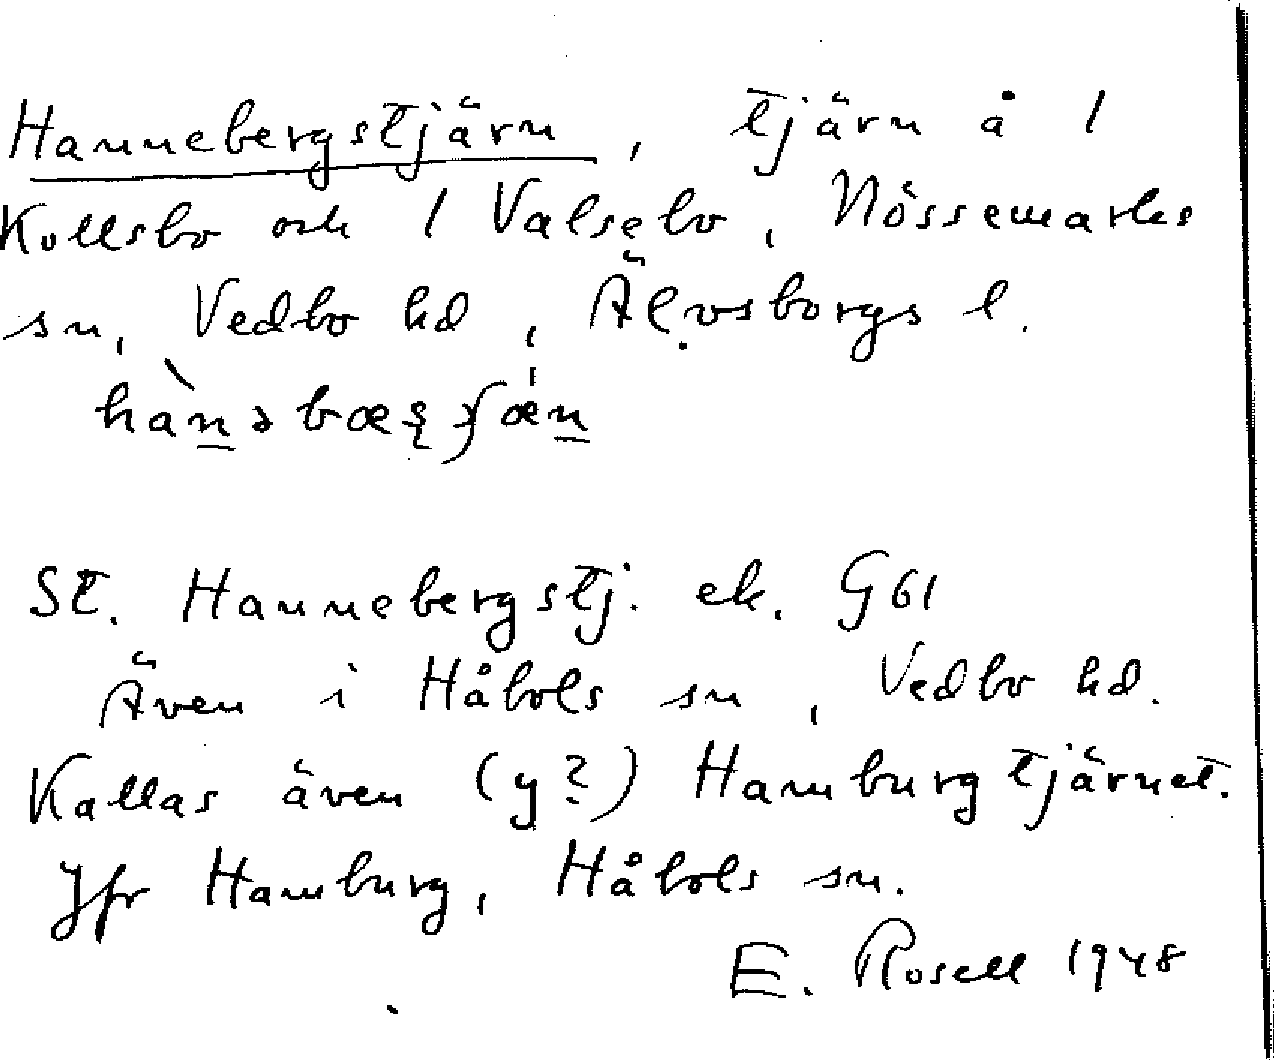 Hannebergstjärn, tjärn å 1
Kollsbo och 1 Valsebo, Nössemarks
sn, Vedbo hd, Älvsborgs l.
St. Hannebergstj. ek. G61
Även i Håbols sn, Vedbo hd.
Kallas även (y?) Hamburgtjärnet.
Jfr Hamburg, Håbols sn.
E. Rosell 1948